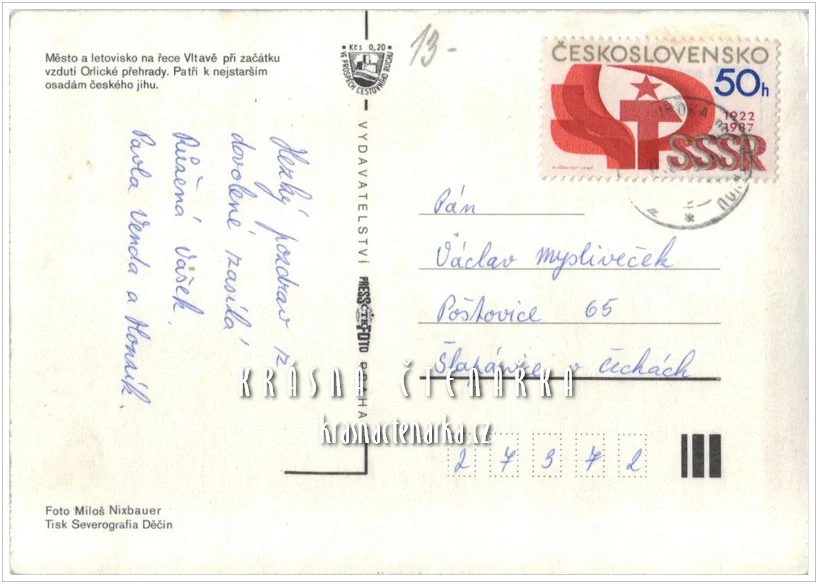 Město a letovisko na řece Vltavě při začátku
vzdutí Orlické přehrady. Patří k nejstarším
osadám českého jihu.
Kčs 0,20
VE PROSPĚCH CESTOVNÍHO RUCHU
13-
ČESKOSLOVENSKO
50h
1922
1987
SSSR
Hezký pozdrav z
dovolené zasílá
Růžena Vašek
Pavla Venda a Honzík.
VYDAVATELSTVÍ PRESSFOTO PRAHA
ČTK
Pán
Václav Mysliveček
Poštovice 65
v Čechách
27372
KRÁSNÁ ČTENÁRKA
krasnactenarka.cz
Foto Miloš Nixbauer
Tisk Severografia Děčín